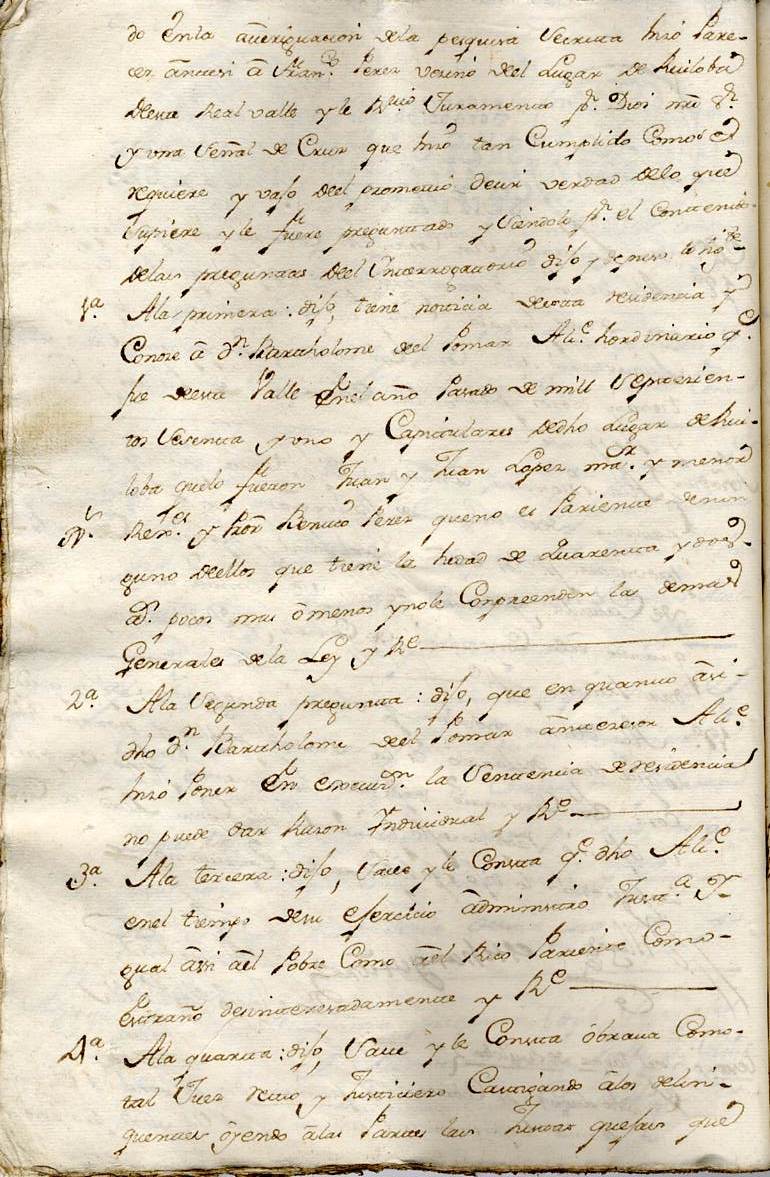 do En la averiguacion dela pesquisa Secreta hizo Pare-
cer antesi â Fran.co Perez vezino del Lugar de Ruiloba
desta Real valle y le Rziuio Juramento p.r Dios nrô S.r
y una Señal de Cruz que hizo tan Cumplido Como se
requiere y vajo deel prometio decir verdad delo que
supiere y le fuere preguntado y siendolo p.r el Contenido
delas preguntas deel Interrogatorio dijo y depuso lo sig.te
1.a Ala primera: dijo, tiene noticia desta residencia y
Conoze â d.n Bartholome del Pomar Alc.e hordinario q.e
fue desta Valle En el año Pasado de mill Septecien-
tos Sesenta y uno y Capitulares de dho Lugar de Rui-
loba que lo fueron Juan y Juan Lopez ma.r y menor
Rex.es y Pror Benito Perez que no es Pariente de nin
guno deellos que tiene la hedad de Quarenta y dos
a.s pocos mas ô menos y no le Conpreenden las demas
Generales de la Ley y R.e
2.a Ala Segunda pregunta: dijo, que en quanto âsi-
dho d.n Bartholome deel Pomar antecesor Alc.e
hizo Poner En execuz.n la Sentencia de residencia
no puede dar Razon Indiuidual y R.e
3.a Ala tercera: dijo, Saue y le Consta q.e dho Alc.e
en el tiempo desu esercicio administro Just.a Y-
gual âsi âel Pobre Como âel Rico Pariente Como-
Estraño desinteresadamente y R.e
4.a Ala quarta: dijo, Saue y le Consta ôbraua Como-
tal Juez Recto y Justiciero Castigando âlos delin-
quentes ôyendo âlas Partes las Justas quejas que